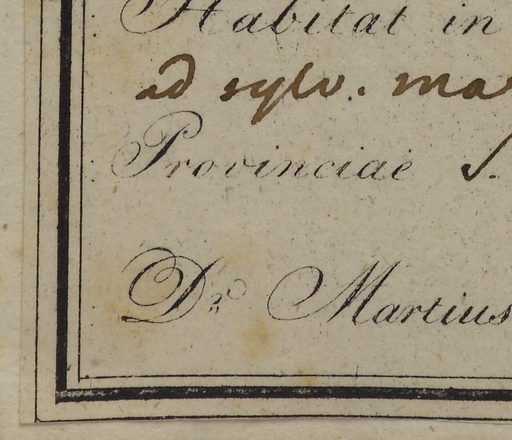 Habitat in
ad sylv. mar
Provinciae S.
Dr. Martius